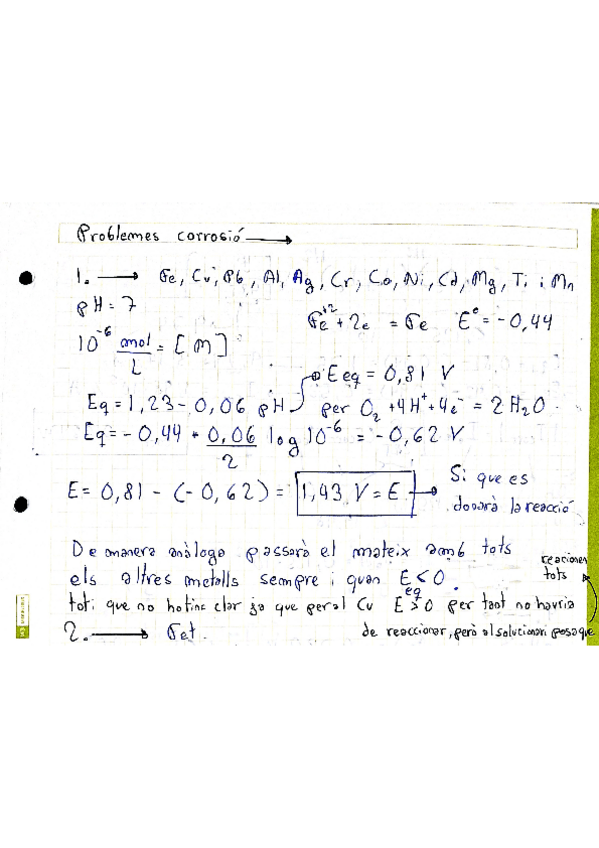 Problemes corrosió →
1. → Fe, Cu, Pb, Al, Ag, Cr, Co, Ni, Cd, Mg, Ti i Mn
pH = 7
Fe⁺² + 2e = Fe E° = -0,44
10⁻⁶ mol/L = [M]
Eeq = 0,81 V
Eq = 1,23 - 0,06 pH per O₂ + 4H⁺ + 4e⁻ = 2H₂O
Eq = -0,44 + 0,06/2 log 10⁻⁶ = -0,62 V
E = 0,81 - (-0,62) = 1,43 V = E → Si que es
donarà la reacció
De manera anàloga passarà el mateix amb tots
els altres metalls sempre i quan Eeq < 0.
tot i que no ho tinc clar ja que per al Cu E > 0 per tant no hauria
de reaccionar, però al solucionari posa que
reaccionen
tots
2. → Fet.